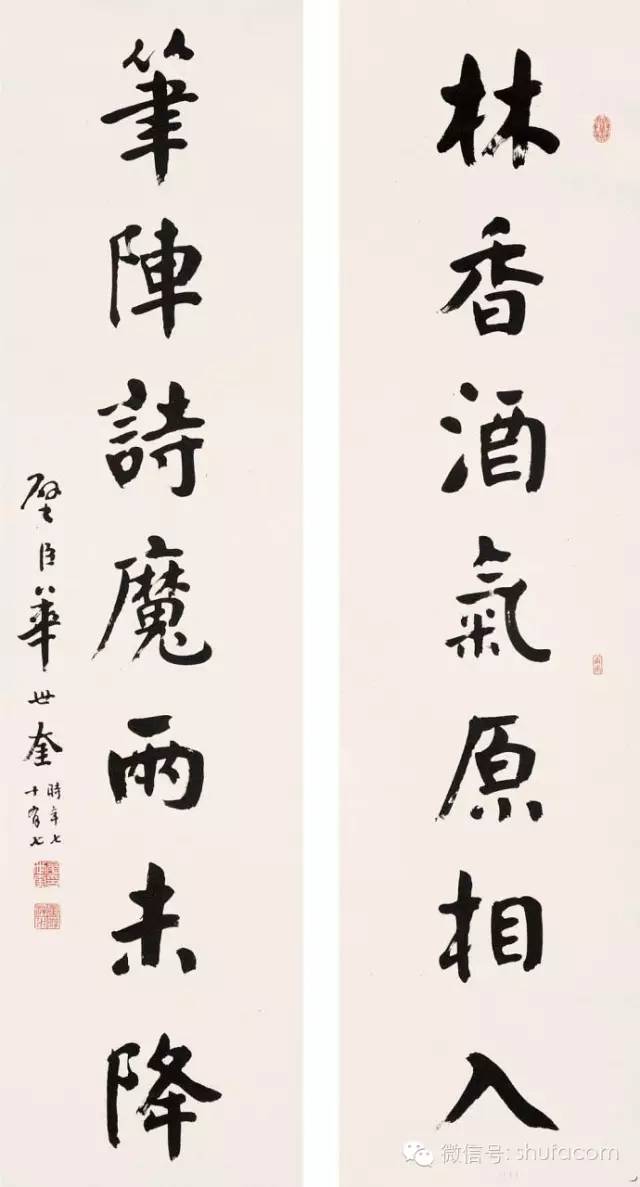 林香酒氣原相入
筆陣詩魔兩未降
璧臣華世奎
時年七
十有七
微信号: shufacom